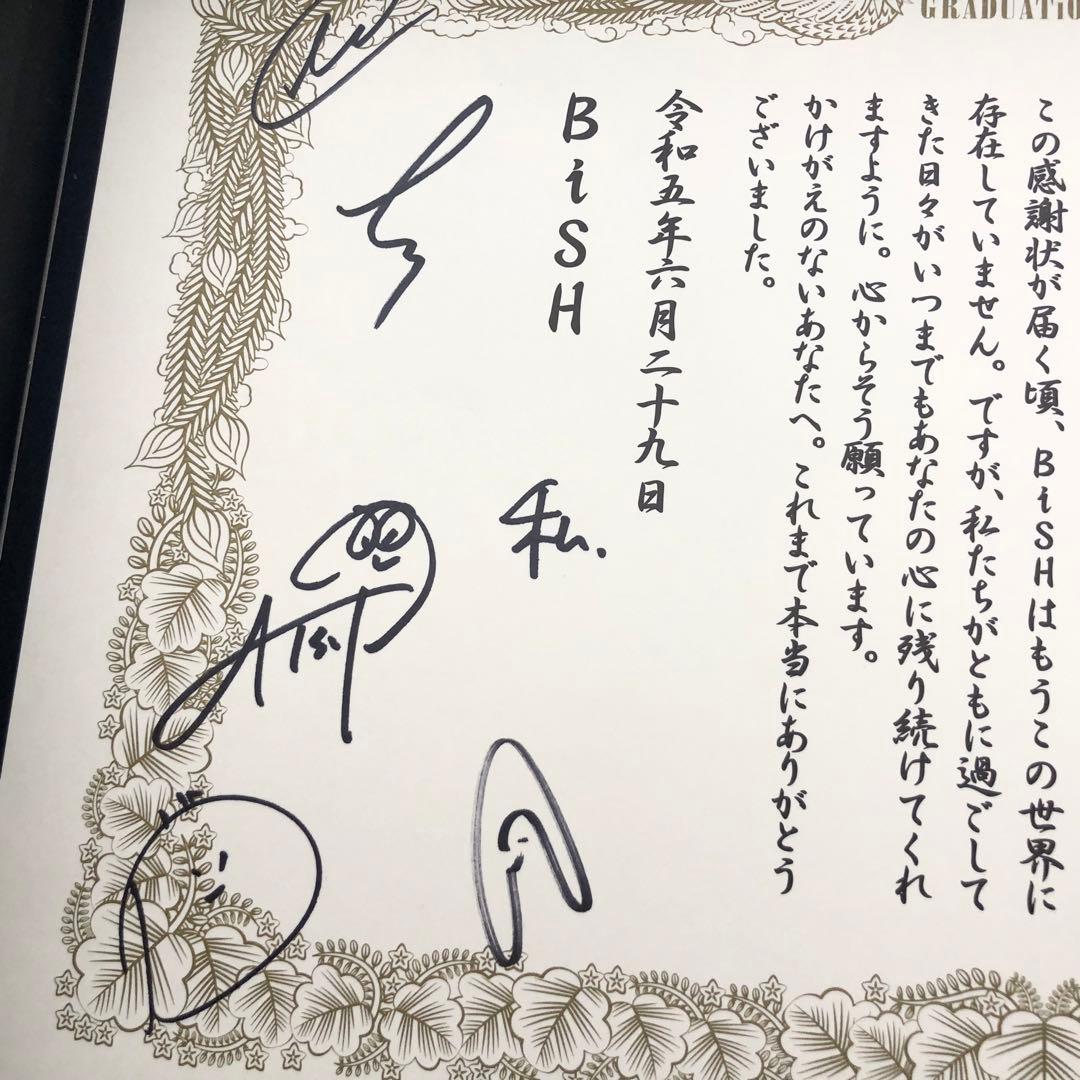 GRADUATiO
この感謝状が届く頃、BiSHはもうこの世界に
存在していません。ですが、私たちがともに過ごして
きた日々がいつまでもあなたの心に残り続けてくれ
ますように。心からそう願っています。
かけがえのないあなたへ。これまで本当にありがとう
ございました。
令和五年六月二十九日
BiSH